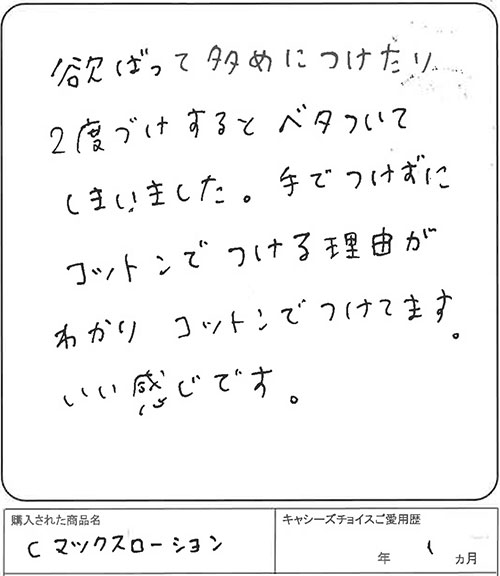 欲ばって多めにつけたり
2度づけするとベタついて
しまいました。手でつけずに
コットンでつける理由が
わかりコットンでつけてます。
いい感じです。
購入された商品名
キャシーズチョイスご愛用歴
C マックスローション
年 1 ヵ月